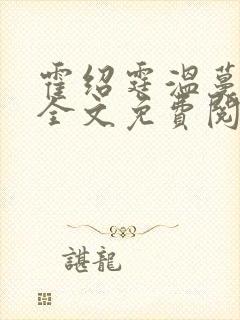 霍绍霆温蔓
全文免費閱
諶龍